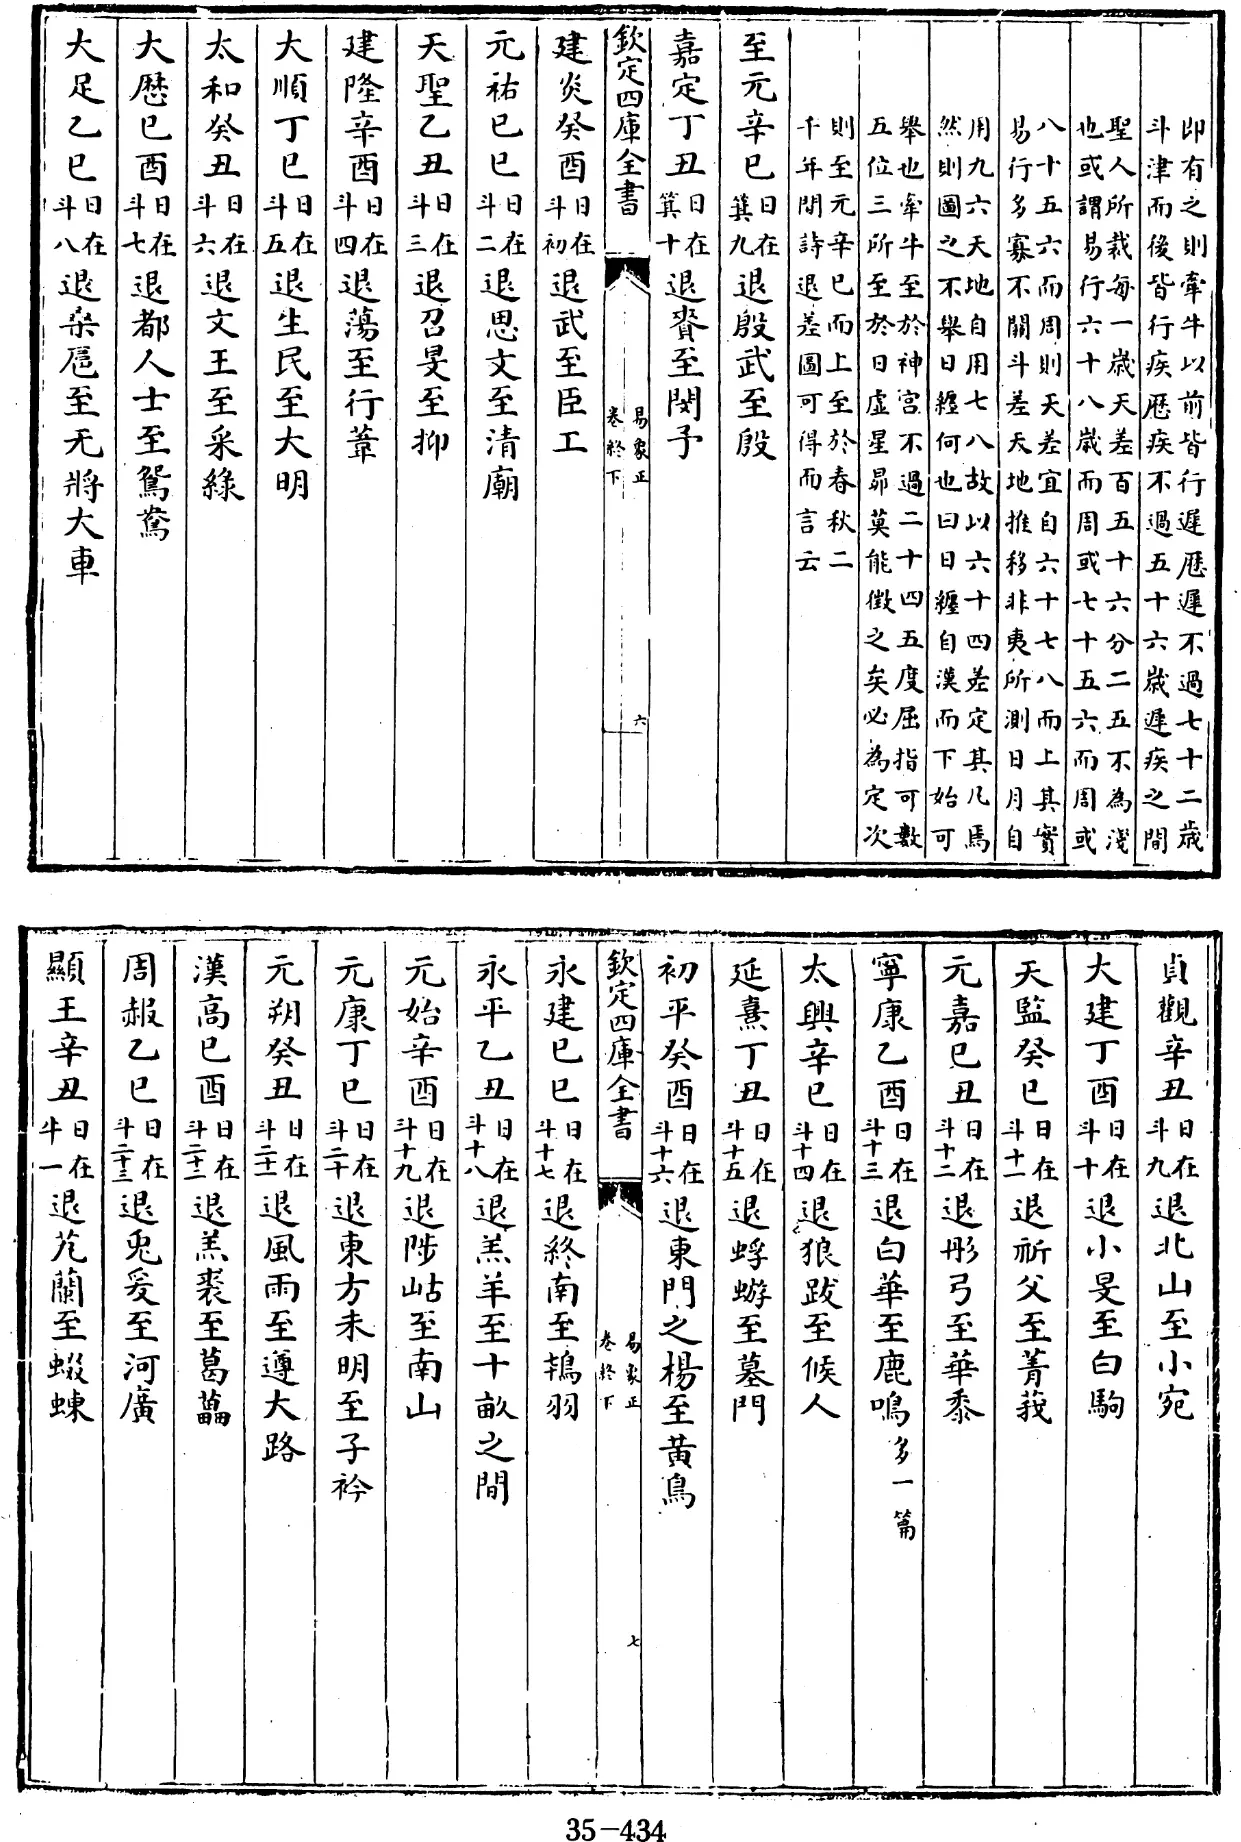 即有之則牽牛以前皆行遲厯遲不過七十二歲
斗津而後皆行疾厯疾不過五十六歲遲疾之間
聖人所裁每一歲天差百五十六分二五不為淺
也或謂易行六十八歲而周或七十五六而周或
八十五六而周則天差宜自六十七八而上其實
易行多寡不關斗差天地推移非夷所測日月自
用九六天地自用七八故以六十四差定其凡焉
然則圖之不舉日纒何也曰日纒自漢而下始可
舉也牽牛至於神宫不過二十四五度屈指可數
五位三所至於日虚星昴莫能徴之矣必為定次
則至元辛巳而上至於春秋二
千年間詩退差圖可得而言云
至元辛巳日在箕九退殷武至殷
嘉定丁丑日在箕十退賚至閔予
欽定四庫全書
易象正
卷終下
六
建炎癸酉日在斗初退武至臣工
元祐巳巳日在斗二退思文至清廟
天聖乙丑日在斗三退召旻至抑
建隆辛酉日在斗四退蕩至行葦
大順丁巳日在斗五退生民至大明
太和癸丑日在斗六退文王至采綠
大厯巳酉日在斗七退都人士至鴛鴦
大足乙巳日在斗八退桑扈至无將大車
貞觀辛丑日在斗九退北山至小宛
大建丁酉日在斗十退小旻至白駒
天監癸巳日在斗十一退祈父至菁莪
元嘉巳丑日在斗十二退彤弓至華黍
寧康乙酉日在斗十三退白華至鹿鳴多一篇
太興辛巳日在斗十四退狼跋至候人
延熹丁丑日在斗十五退蜉蝣至墓門
初平癸酉日在斗十六退東門之楊至黄鳥
欽定四庫全書
易象正
卷終下
七
永建巳巳日在斗十七退終南至鴇羽
永平乙丑日在斗十八退羔羊至十畝之間
元始辛酉日在斗十九退陟岵至南山
元康丁巳日在斗二十退東方未明至子衿
元朔癸丑日在斗二十一退風雨至遵大路
漢高巳酉日在斗二十二退羔裘至葛藟
周赧乙巳日在斗二十三退兎爰至河廣
顯王辛丑日在牛一退芃蘭至蝃蝀
35-434